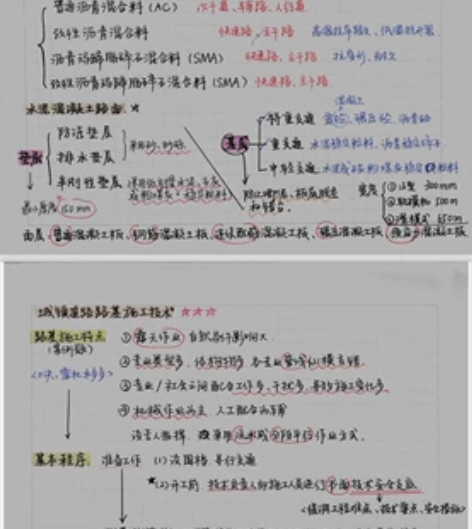 普通沥青混合料（AC） 次干道、辅路、人行道
改性沥青混合料 快速路、主干路 高温抗车辙、低温抗开裂
沥青玛蹄脂碎石混合料（SMA） 快速路、主干路 抗磨耗、耐久
改性沥青玛蹄脂碎石混合料（SMA） 快速路、主干路
水泥混凝土路面 ★
垫层
防冻垫层
排水垫层
半刚性垫层
最小厚度 150mm
基层
混凝土
特重交通 贫混、碾压砼、沥青砼
重交通 水泥稳定粒料、沥青稳定碎石
中轻交通
宽度 ①小型 300mm
②轨模 500mm
③滑模式 650mm
面层：普通混凝土板、钢筋混凝土板、连续配筋混凝土板、碾压混凝土板、预应力混凝土板
城镇道路路基施工技术 ☆☆☆
路基施工特点 ①露天作业 自然条件影响大
（案例题）
②专业类型多、结构物多 各专业管线纵横交错
③专业/社会之间配合工作多、干扰多、导致施工变化多
④机械作业为主，人工配合为辅
设专人指挥，采用流水或分段平行作业方式。
基本程序 准备工作 （1）设围挡、导行交通
★（2）开工前 技术负责人向施工人员进行书面技术安全交底